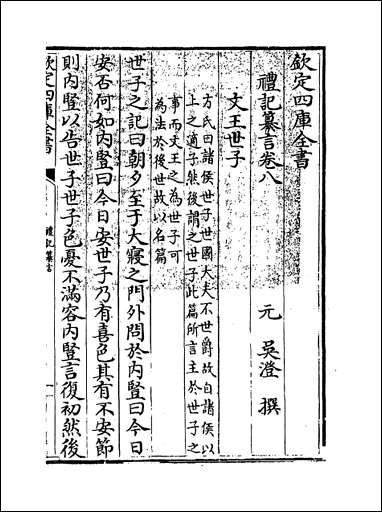 欽定四庫全書
禮記纂言卷八
元　吳澄　撰
文王世子
方氏曰諸侯世子世國大夫不世爵故自諸侯以
上之適子然後謂之世子此篇所言主於世子之
事而文王之為世子可
為法於後世故以名篇
世子之記曰朝夕至于大寢之門外問於內豎曰今日
安否何如內豎曰今日安世子乃有喜色其有不安節
則內豎以告世子世子色憂不滿容內豎言復初然後
欽定四庫全書
禮記纂言
一